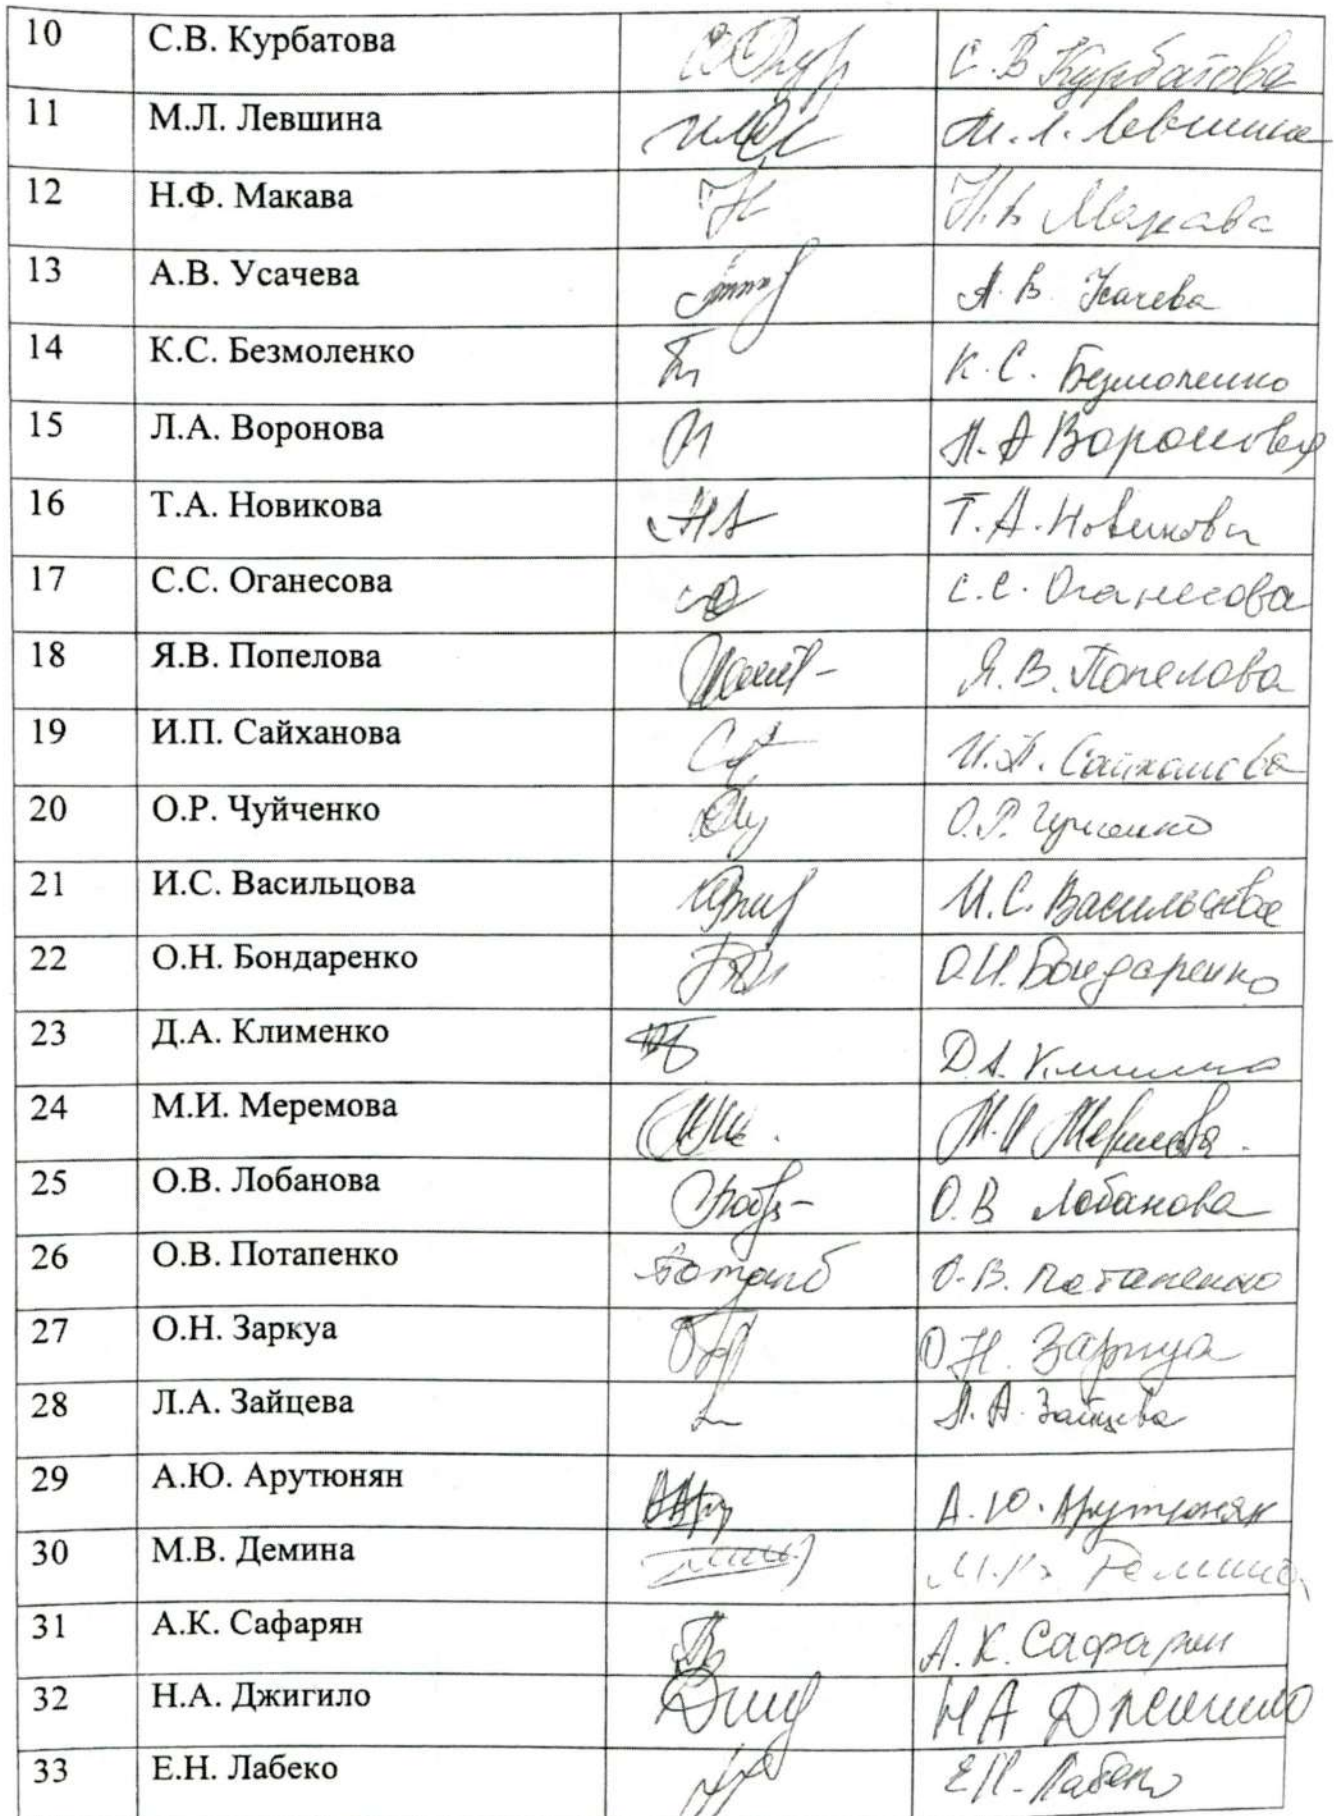 10 С.В. Курбатова С.В Курбатова
11 М.Л. Левшина М.Л. Левшина
12 Н.Ф. Макава Макава
13 А.В. Усачева А.В. Усачева
14 К.С. Безмоленко К.С. Безмоленко
15 Л.А. Воронова Л.А Воронова
16 Т.А. Новикова Т.А. Новикова
17 С.С. Оганесова С.С. Оганесова
18 Я.В. Попелова Я.В. Попелова
19 И.П. Сайханова И.П. Сайханова
20 О.Р. Чуйченко О.Р.
21 И.С. Васильцова И.С. Васильцова
22 О.Н. Бондаренко О.Н. Бондаренко
23 Д.А. Клименко Д.А.
24 М.И. Меремова М.И
25 О.В. Лобанова О.В Лобанова
26 О.В. Потапенко О.В. Потапенко
27 О.Н. Заркуа О Н. Заркуа
28 Л.А. Зайцева Л.А. Зайцева
29 А.Ю. Арутюнян А.Ю. Арутюнян
30 М.В. Демина М.В Демина
31 А.К. Сафарян А.К. Сафарян
32 Н.А. Джигило Н А Джигило
33 Е.Н. Лабеко Е Н. Лабеко